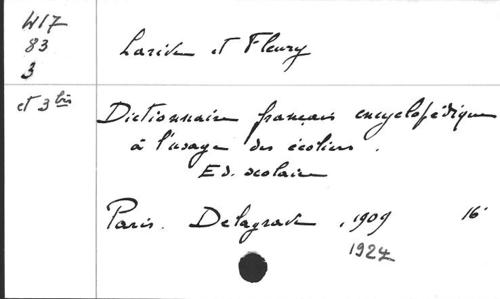 W17
83
3
Larive et Fleury
et 3 bis
Dictionnaire français encyclopédique
à l'usage des écoliers.
Ed. scolaire
Paris. Delagrave, 1909 16°
1924